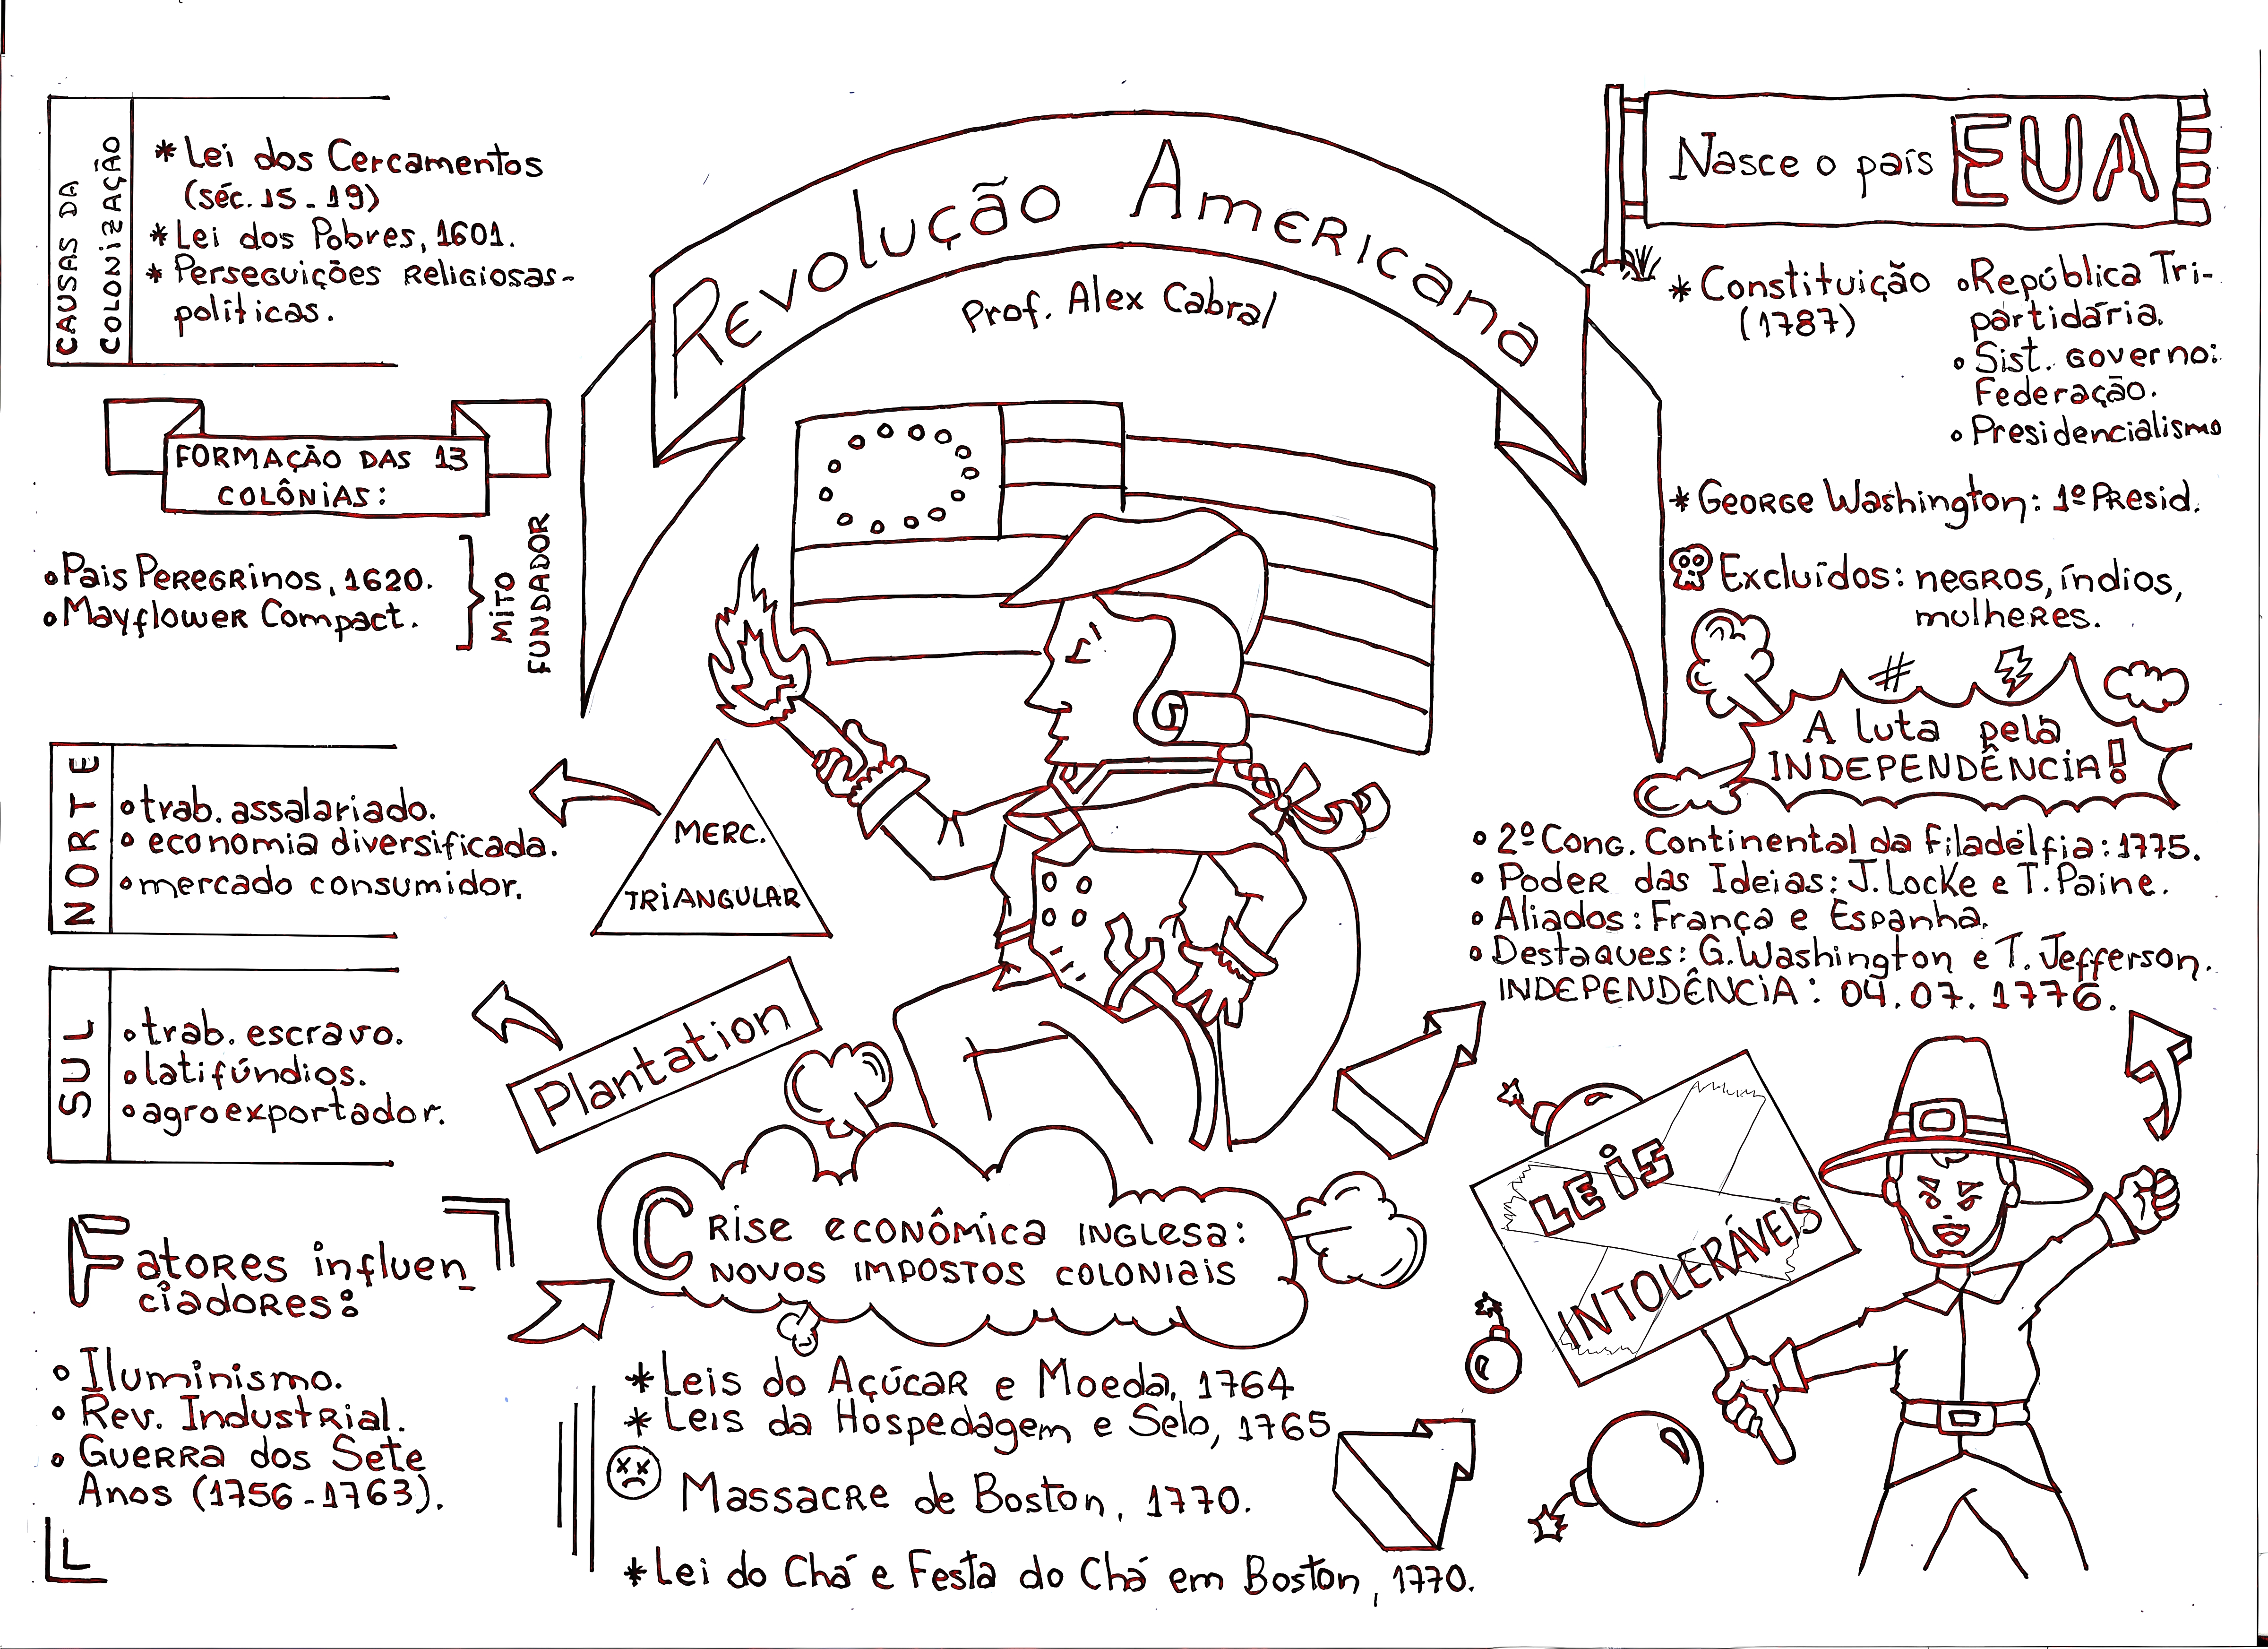 Revolução Americana
Prof. Alex Cabral
CAUSAS DA
COLONIZAÇÃO
* Lei dos Cercamentos
(séc. 15 - 19)
* Lei dos Pobres, 1601.
* Perseguições Religiosas-
políticas.
FORMAÇÃO DAS 13
COLÔNIAS:
• Pais Peregrinos, 1620.
• Mayflower Compact.
MITO
FUNDADOR
NORTE
• trab. assalariado.
• economia diversificada.
• mercado consumidor.
MERC.
TRIANGULAR
SUL
• trab. escravo.
• latifúndios.
• agroexportador.
Plantation
Fatores influen_
ciadores:
• Iluminismo.
• Rev. Industrial.
• Guerra dos Sete
Anos (1756-1763).
Crise econômica inglesa:
novos impostos coloniais
* Leis do Açúcar e Moeda, 1764
* Leis da Hospedagem e Selo, 1765
Massacre de Boston, 1770.
* Lei do Chá e Festa do Chá em Boston, 1770.
LEIS
INTOLERÁVEIS
A luta pela
INDEPENDÊNCIA!
• 2º Cong. Continental da Filadélfia: 1775.
• Poder das Ideias: J. Locke e T. Paine.
• Aliados: França e Espanha.
• Destaques: G. Washington e T. Jefferson.
INDEPENDÊNCIA: 04.07.1776.
Nasce o país EUA
* Constituição
(1787)
• República Tri-
partidária.
• Sist. Governo:
Federação.
• Presidencialismo
* George Washington: 1º Presid.
Excluídos: negros, índios,
mulheres.
#